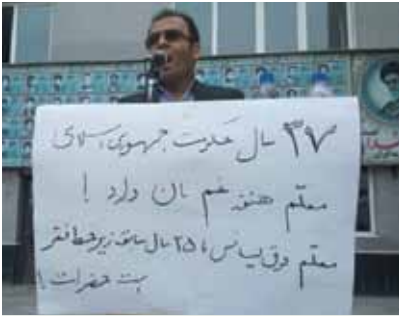 ۳۷ سال حکومت جمهوری اسلامی
معلم هنوز غم نان دارد !
معلم فوق لیسانس با ۲۵ سال سابقه زیر خط فقر
است حضرات !